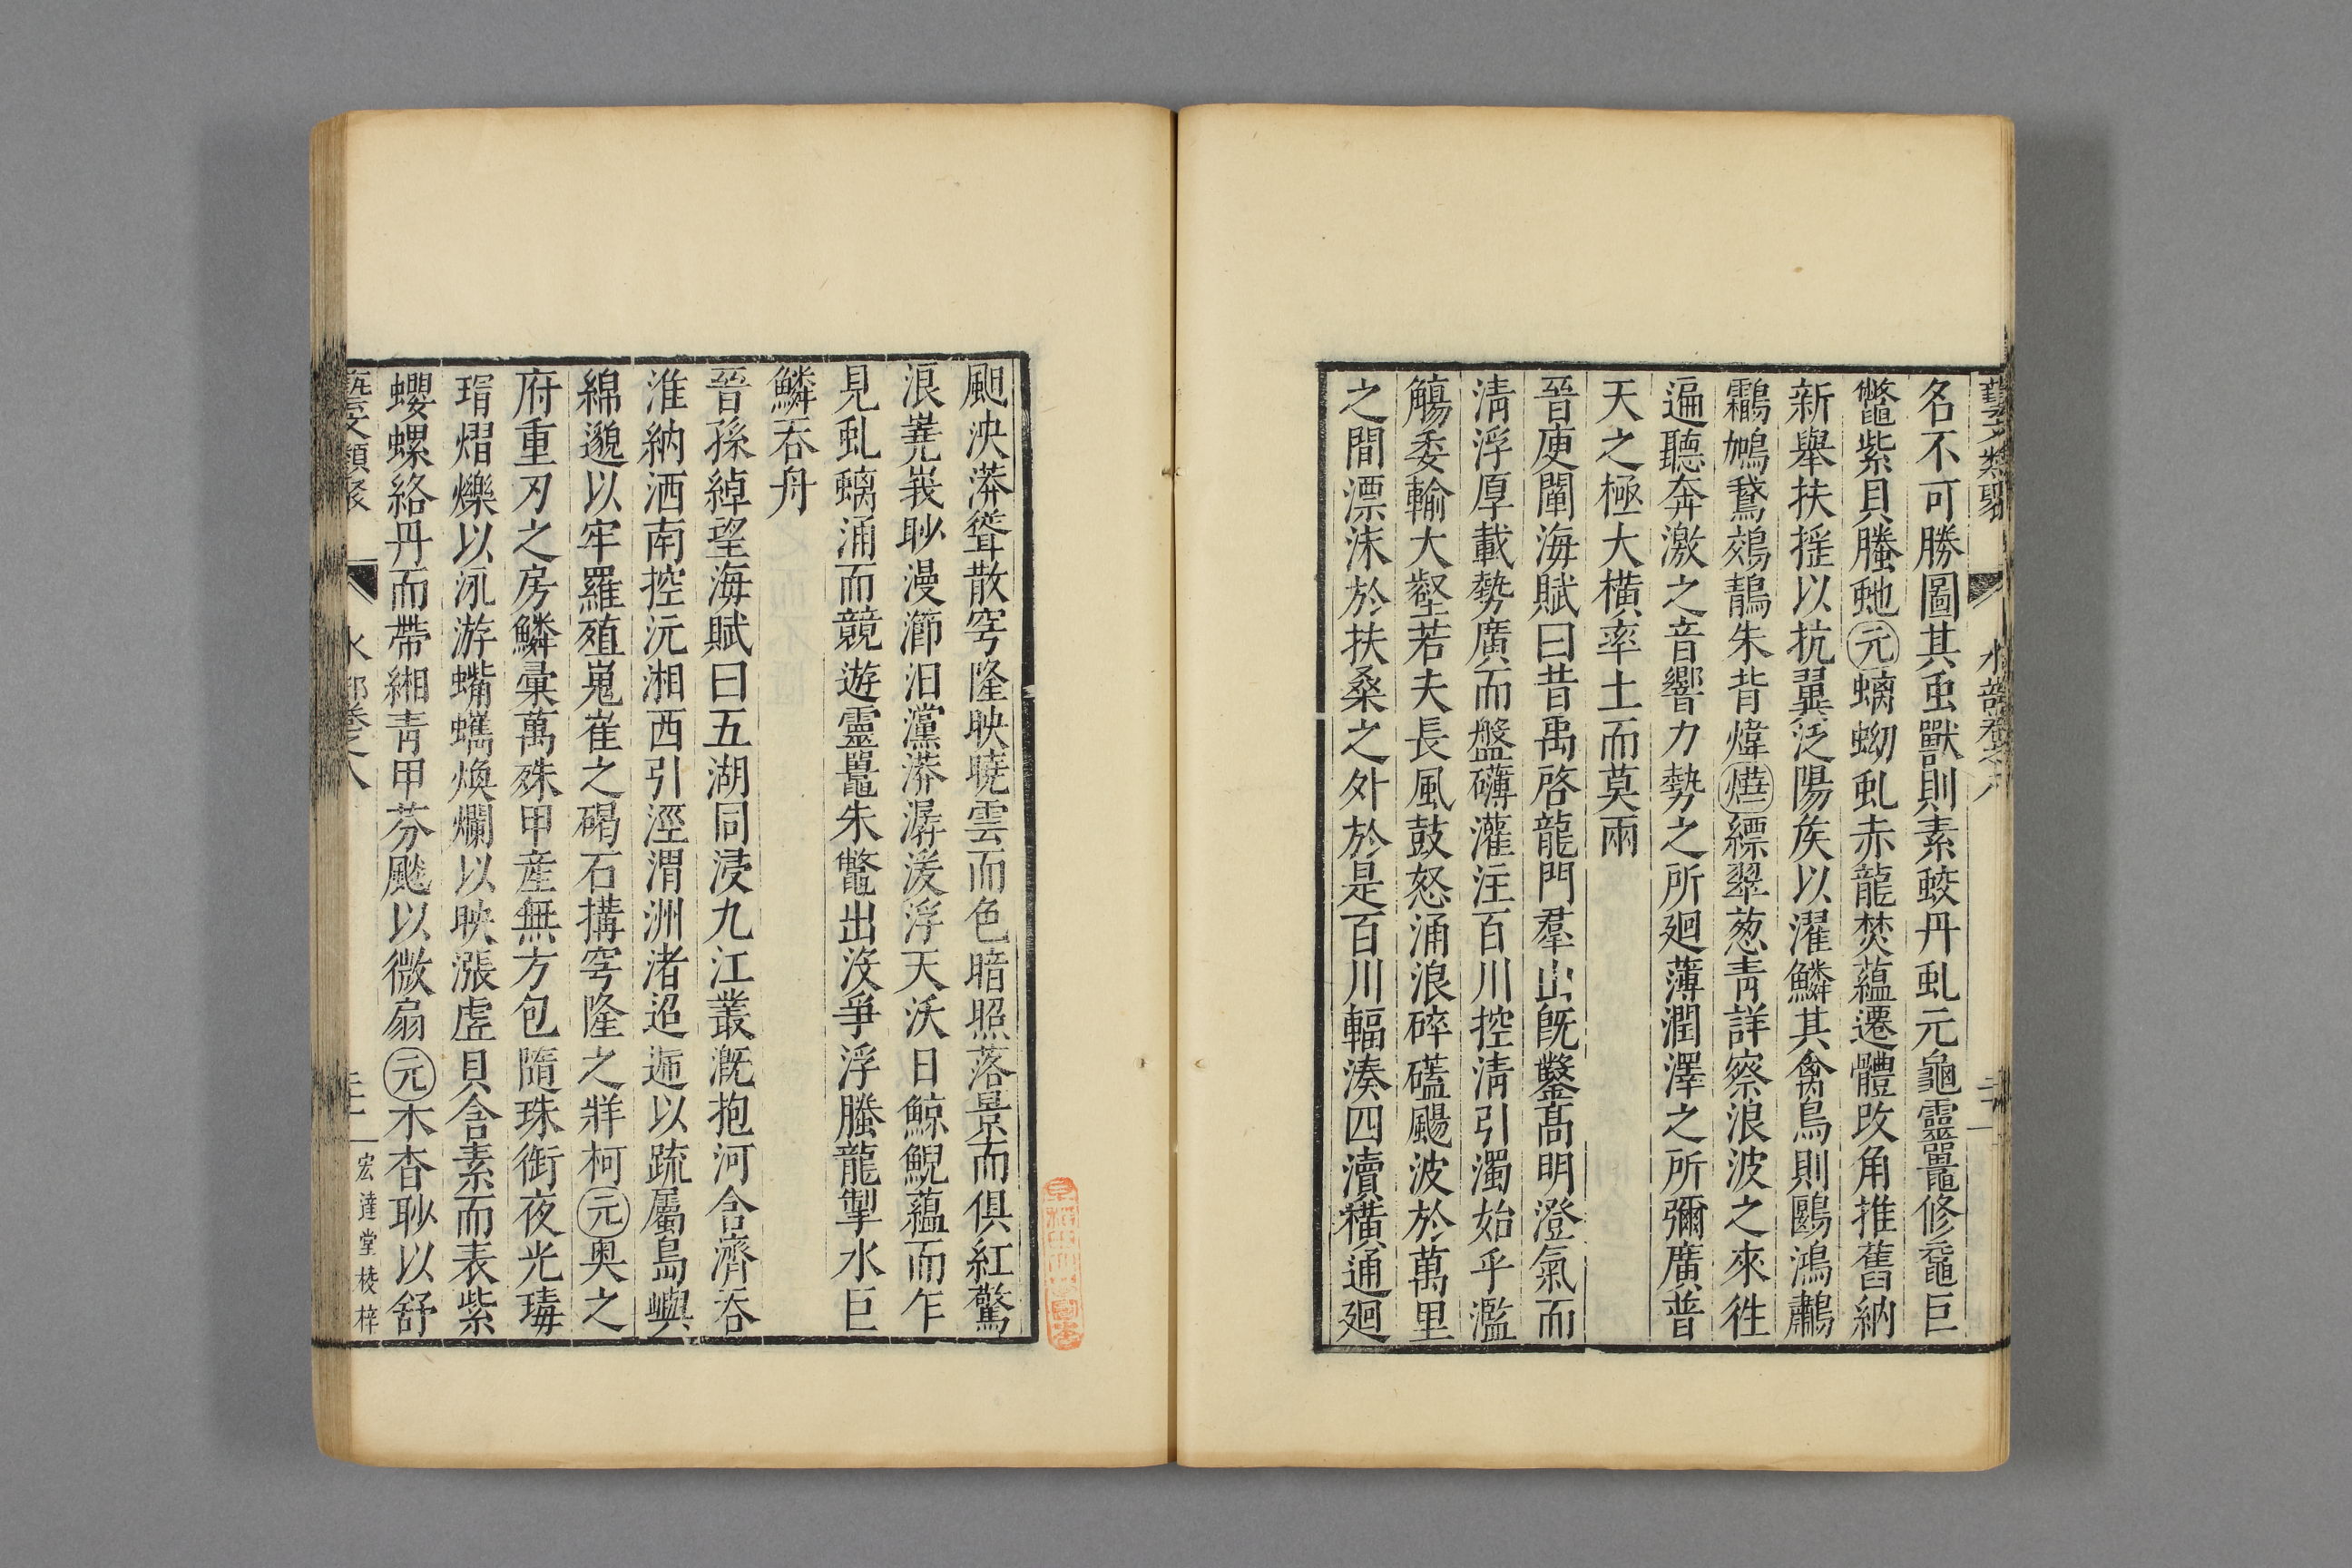 藝文類聚 水部卷之八
名不可勝圖其䖝獸則素蛟丹虬元龜靈鼉修黿巨
鼈紫貝螣虵元螭蚴虬赤龍焚蘊遷體改角推舊納
新舉扶搖以抗翼泛陽矦以濯鱗其禽鳥則鷗鴻鷫
鸘鳩鵞鵁鶄朱背煒燁縹翠葱青詳察浪波之來徃
遍聽奔激之音響力勢之所廻薄潤澤之所彌廣普
天之極大橫率土而莫兩
晉庾闡海賦曰昔禹啓龍門羣山旣鑿高明澄氣而
清浮厚載勢廣而盤礴灌注百川控清引濁始乎濫
觴委輸大壑若夫長風鼓怒涌浪碎礚颺波於萬里
之間漂沫於扶桑之外於是百川輻湊四瀆橫通廻
颶泱漭聳散穹隆映曉雲而色暗照落景而俱紅驚
浪嶤峩眇漫瀄汩瀇漭潺湲浮天沃日鯨鯢蘊而乍
見虬螭涌而競遊靈鼉朱鼈出沒爭浮螣龍掣水巨
鱗吞舟
晉孫綽望海賦曰五湖同浸九江叢漑抱河含濟吞
淮納洒南控沅湘西引涇渭洲渚迢迤以疏屬島嶼
綿邈以牢羅殖嵬崔之碣石搆穹隆之牂柯元奥之
府重刃之房鱗彙萬殊甲産無方包隨珠銜夜光瑇
瑁熠爍以泳游蠵蠵煥爛以映漲虛貝含素而表紫
蠳螺絡丹而帶緗青甲芬飈以微扇元木杳眇以舒
藝文類聚 水部卷之八 宏達堂梭梓